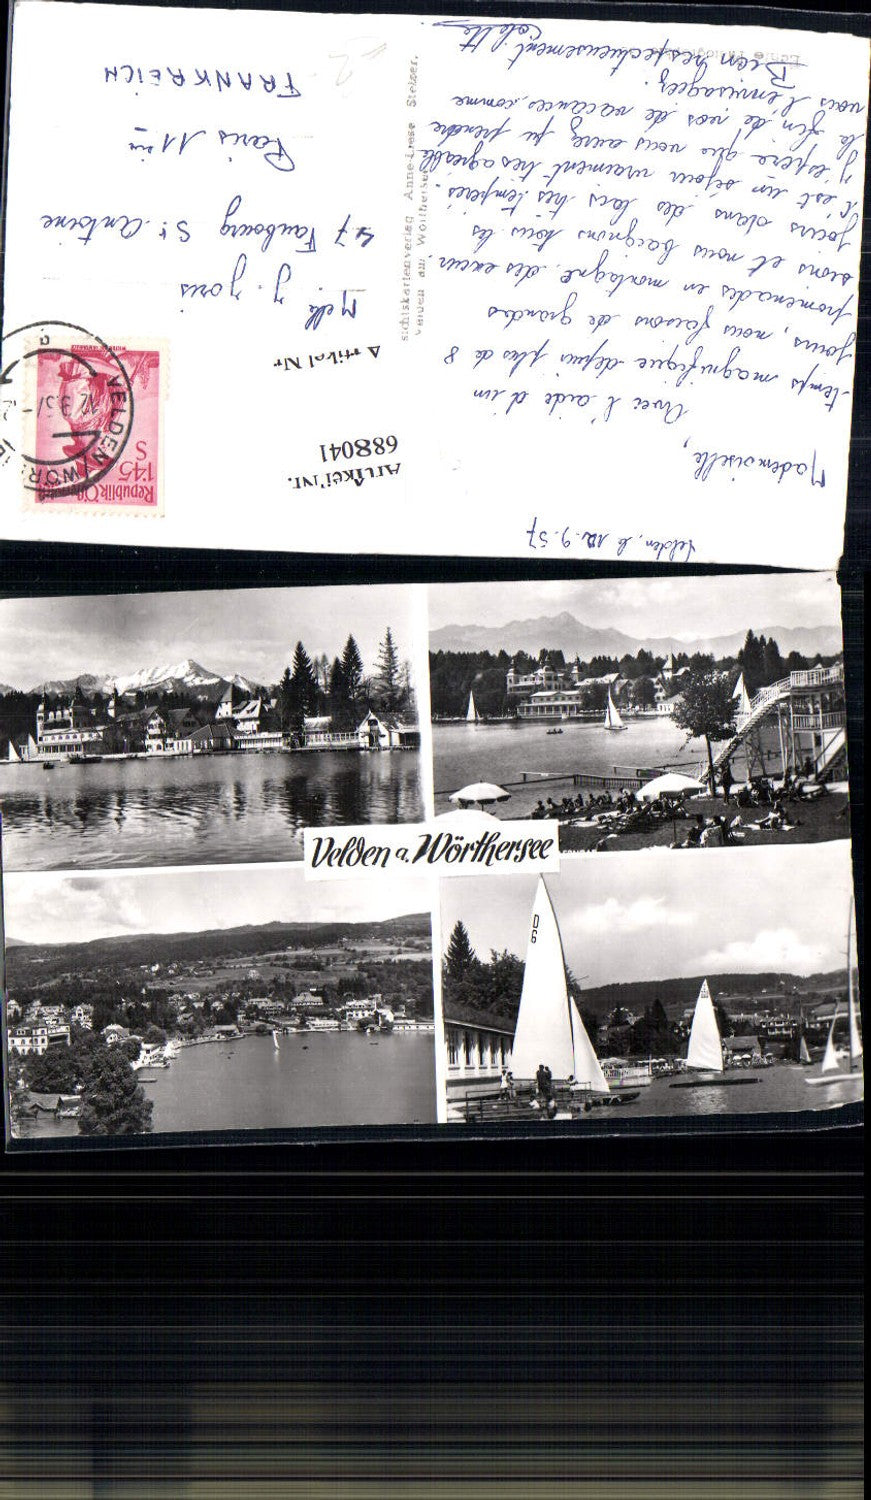 Velden, le 12.9.57
Mademoiselle,
Avec l'aide d'un
temps magnifique depuis plus de 8
jours, nous faisons de grandes
promenades en montagne, des excur-
sions et nous baignons tous les
jours dans des lacs très tempérés.
C'est un séjour vraiment très agréable
J'espère que vous aurez pu prendre
la fin de vos vacances, comme
vous l'envisagiez.
Bien respectueusement.
Colette
Melle J. Joris
47 Faubourg St. Antoine
Paris 11
FRANKREICH
Republik
S 1·45
VELDEN
Artikel Nr.
688041
Artikel Nr.
sichtskartenverlag Anne-Liese Stelzer,
Velden am Wörthersee
Velden a. Wörthersee
D
6